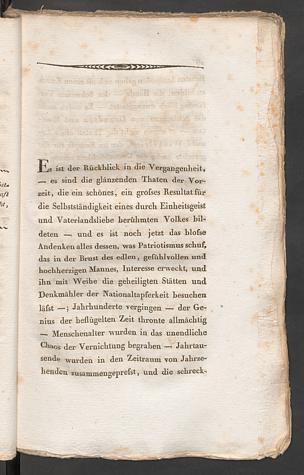 Es ist der Rückblick in die Vergangenheit,
— es sind die glänzenden Thaten der Vor-
zeit, die ein schönes, ein großes Resultat für
die Selbstständigkeit eines durch Einheitsgeist
und Vaterlandsliebe berühmten Volkes bil-
deten — und es ist noch jetzt das bloße
Andenken alles dessen, was Patriotismus schuf,
das in der Brust des edlen, gefühlvollen und
hochherzigen Mannes, Interesse erweckt, und
ihn mit Weihe die geheiligten Stätten und
Denkmähler der Nationaltapferkeit besuchen
läßt —; Jahrhunderte vergingen — der Ge-
nius der beflügelten Zeit thronte allmächtig
— Menschenalter wurden in das unendliche
Chaos der Vernichtung begraben — Jahrtau-
sende wurden in den Zeitraum von Jahrze-
henden zusammengepreßt, und die schreck-